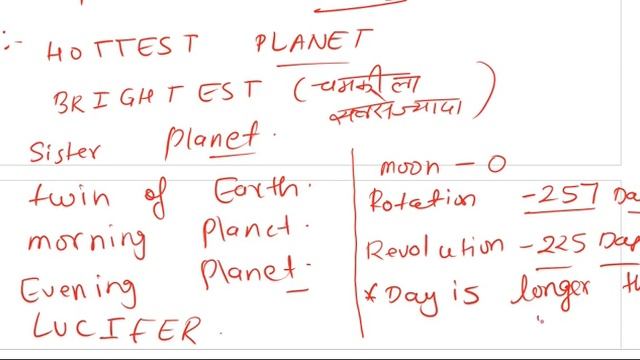 :- HOTTEST PLANET
BRIGHTEST (चमकीला
सबसे ज्यादा)
Sister Planet.
twin of Earth.
morning Planet.
Evening Planet.
LUCIFER.
moon - 0
Rotation - 257 Da
Revolution - 225 Day
* Day is longer th